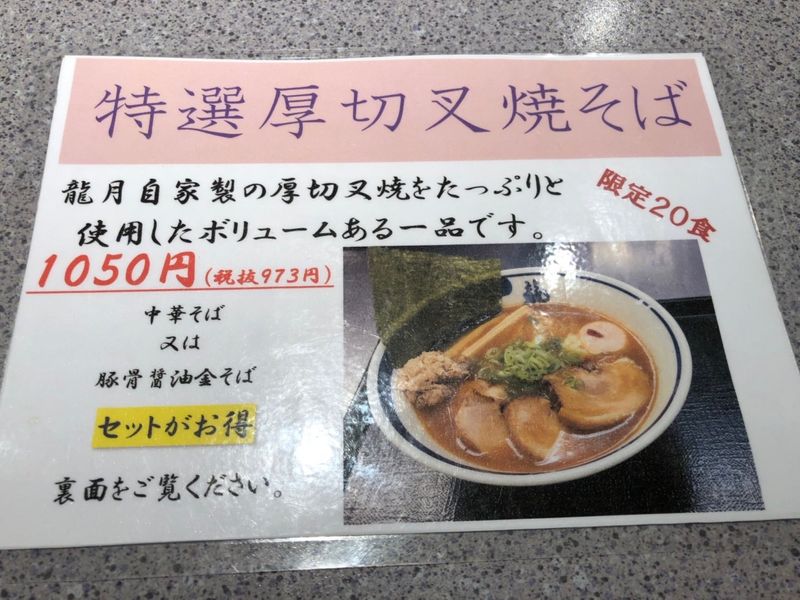 特選厚切叉焼そば
龍月自家製の厚切叉焼をたっぷりと
使用したボリュームある一品です。
限定20食
1050円(税抜973円)
中華そば
又は
豚骨醤油金そば
セットがお得
裏面をご覧ください。
龍